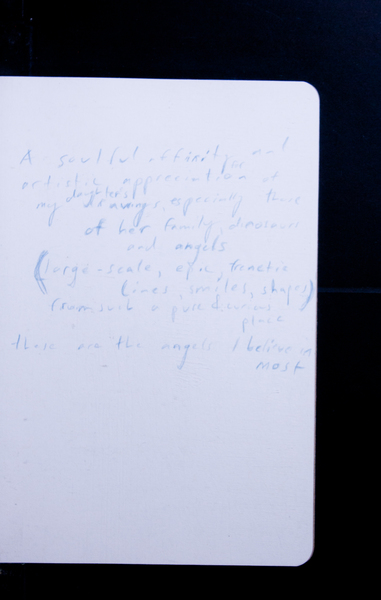 A soulful affinity for and
artistic appreciation of
my daughter's drawings, especially those
of her family, dinosaurs
and angels
(large-scale, epic, frenetic
lines, smiles, shapes)
(from such a pure & curious
place
these are the angels I believe in
most